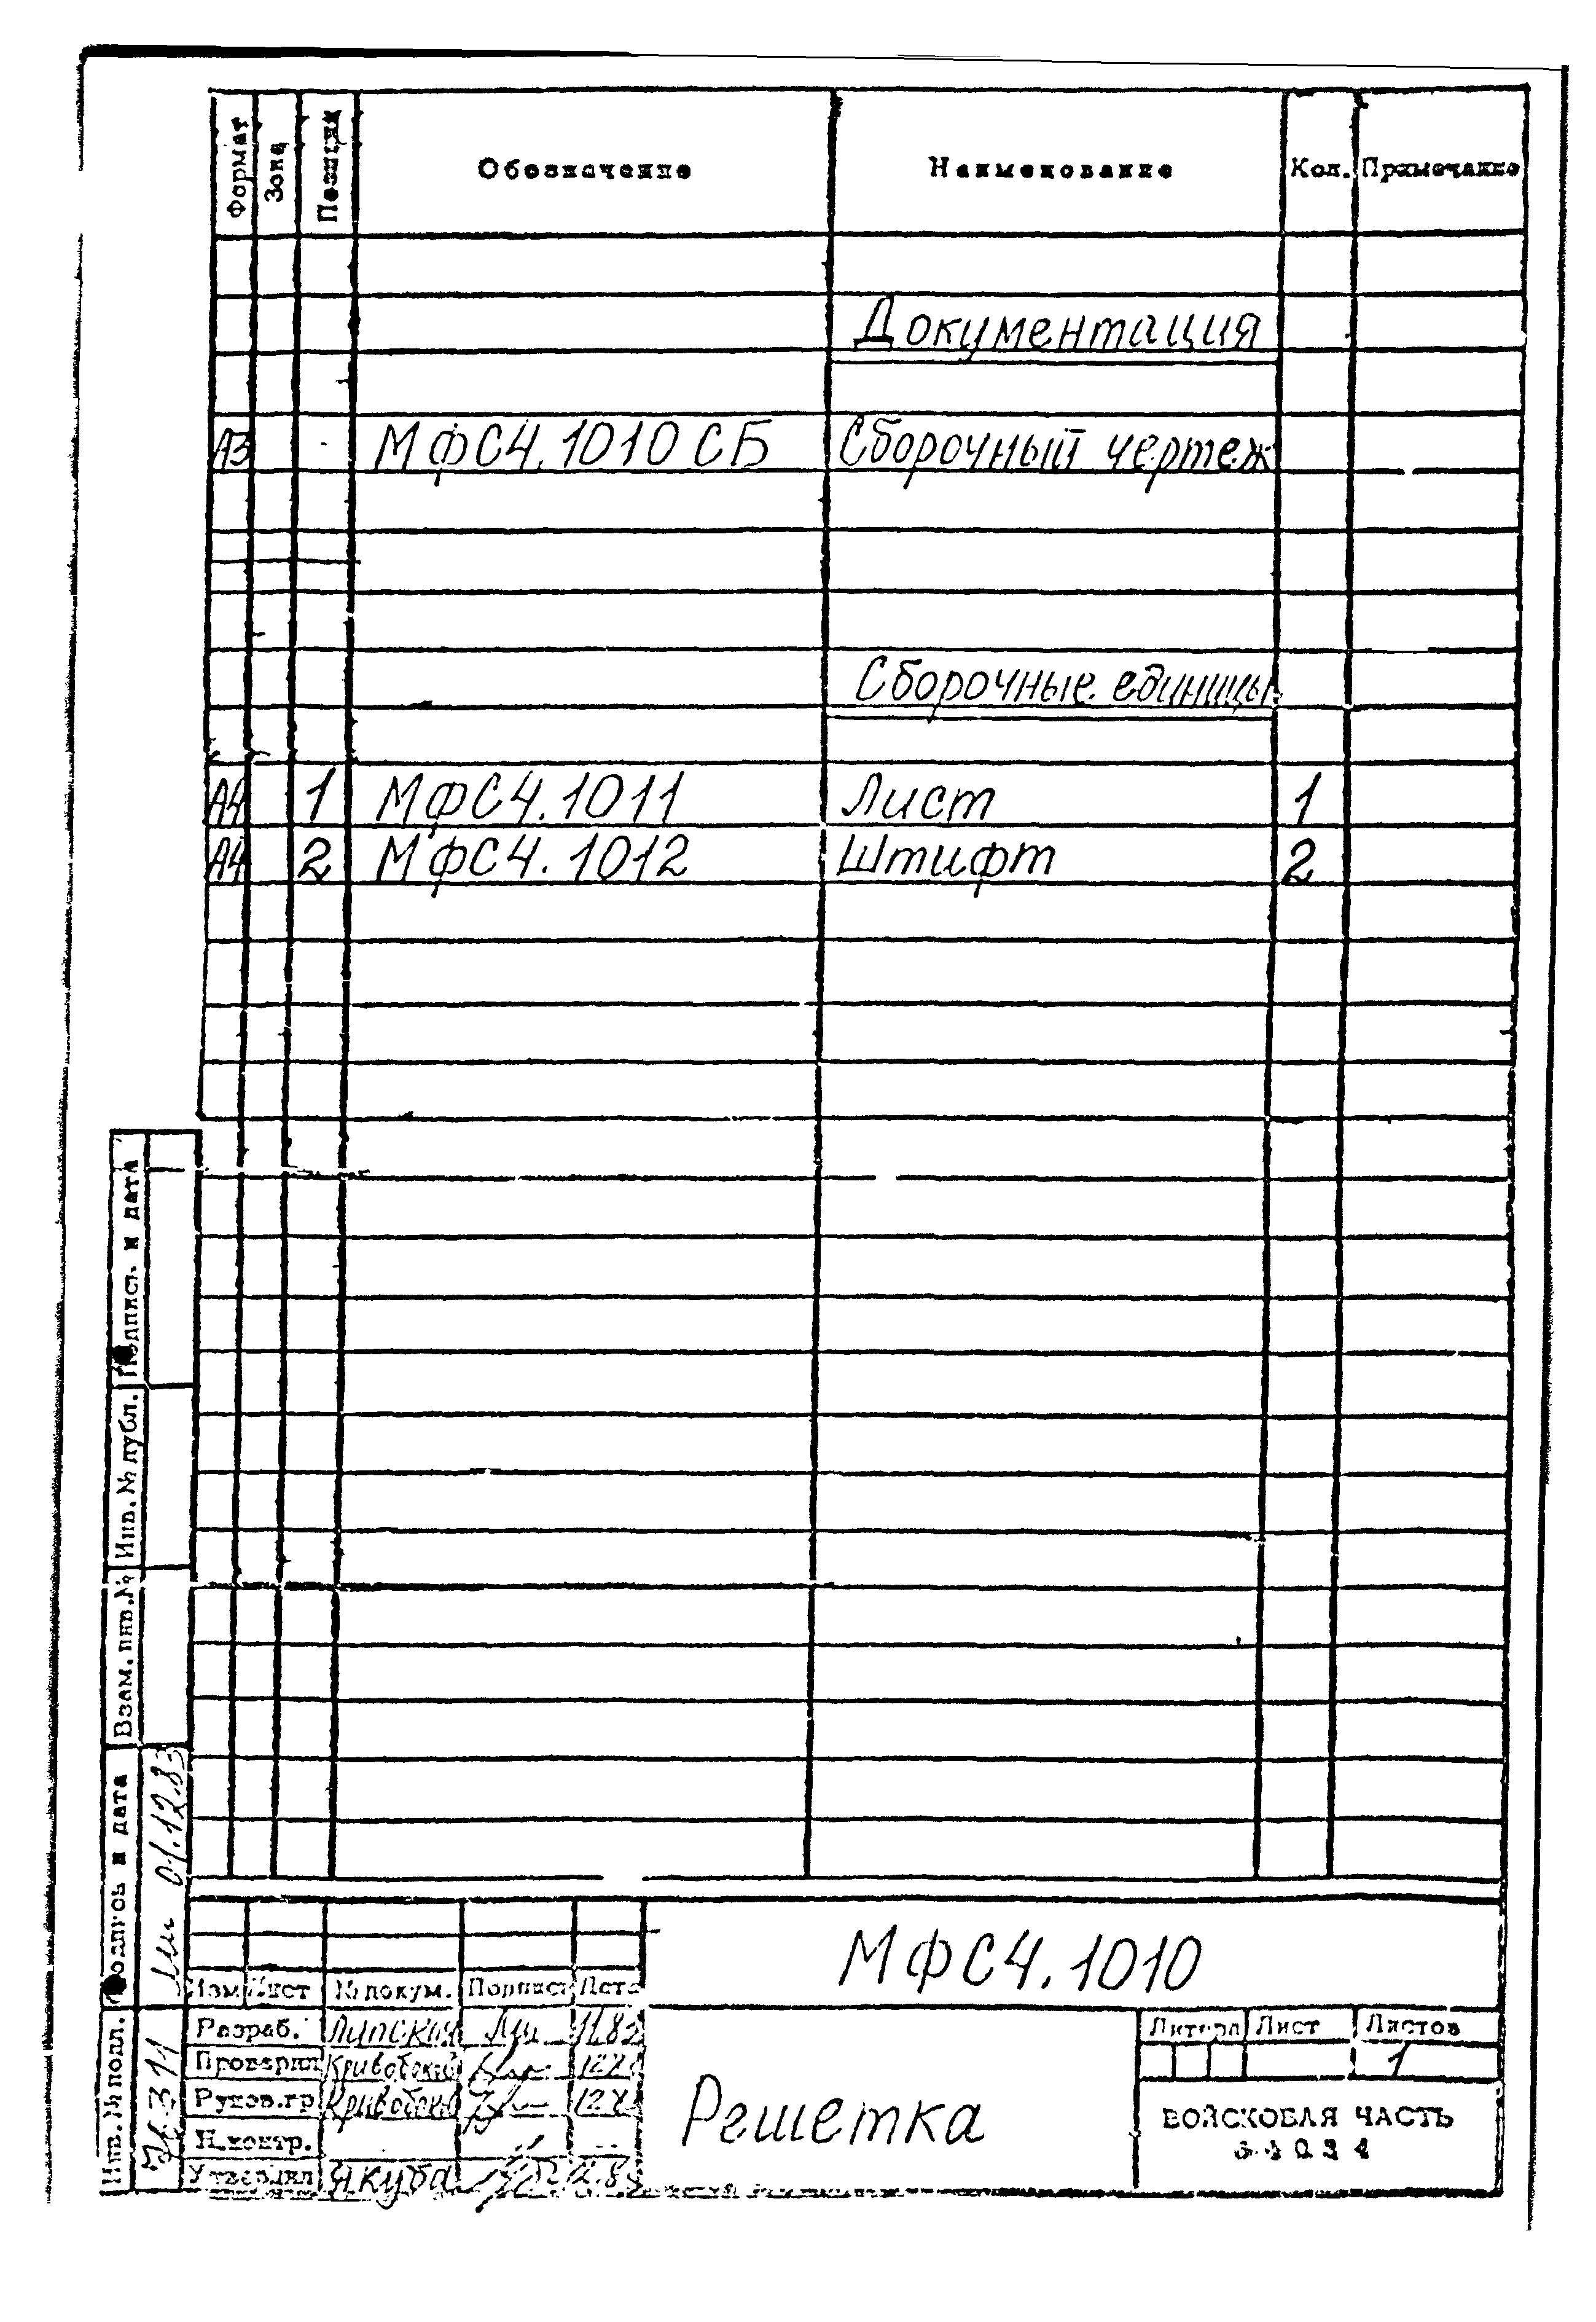 Формат Зона Позиция Обозначение Наименование Кол. Примечание
Документация
А3 МФС4.1010 СБ Сборочный чертеж
Сборочные единицы
А4 1 МФС4.1011 Лист 1
А4 2 МФС4.1012 Штифт 2
Подпись и дата
Инв.№ дубл.
Взам.инв.№
Подпись и дата 01.12.83
Инв.№ подл.
МФС4.1010
Изм Лист № докум. Подпись Дата
Разраб. Липская
Проверил
Руков.гр.
Н.контр.
Утвердил Якуба
Решетка
Литера Лист Листов
1
ВОЙСКОВАЯ ЧАСТЬ